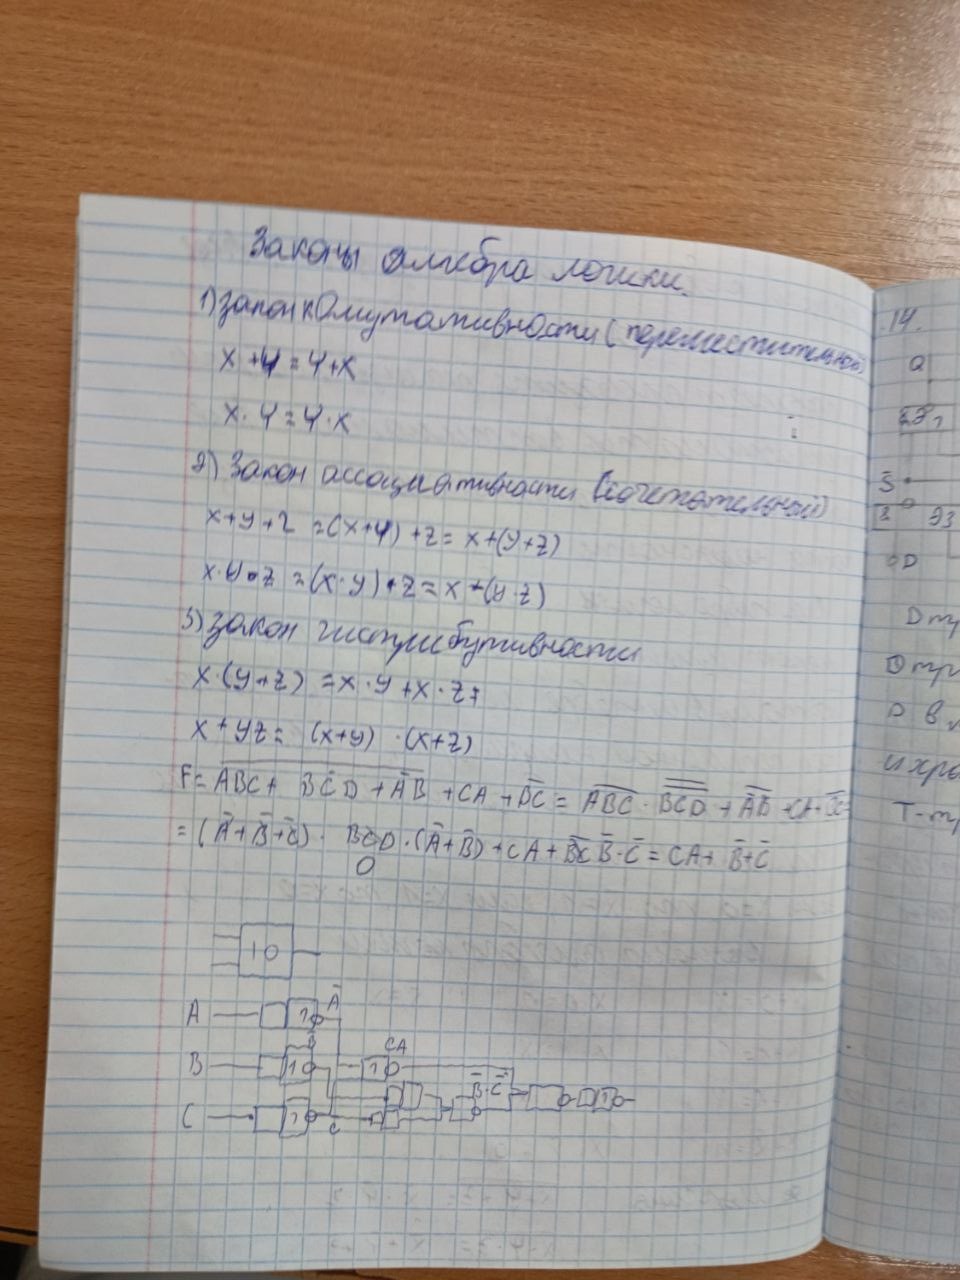 Законы алгебра логики.
1) Закон комутативности (переместительной)
x + y = y + x
x · y = y · x
2) Закон ассоциативности (сочетательный)
x + y + z = (x + y) + z = x + (y + z)
x · y · z = (x · y) · z = x · (y · z)
3) Закон дистрибутивности
x · (y + z) = x · y + x · z
x + yz = (x + y) · (x + z)
F = A̅B̅C̅ + B̅C̅D̅ + A̅B̅ + CA + B̅C̅ =
= (A̅ + B̅ + C̅) · BCD · (A̅ + B̅) + CA + B̅C̅ B̅ · C̅ = CA + B̅ + C̅
0
1
A 1 A̅
B 1 CA 1 B̅ · C̅ 1
C 1 C
14.
Q
S̅
Э3
D
И хра